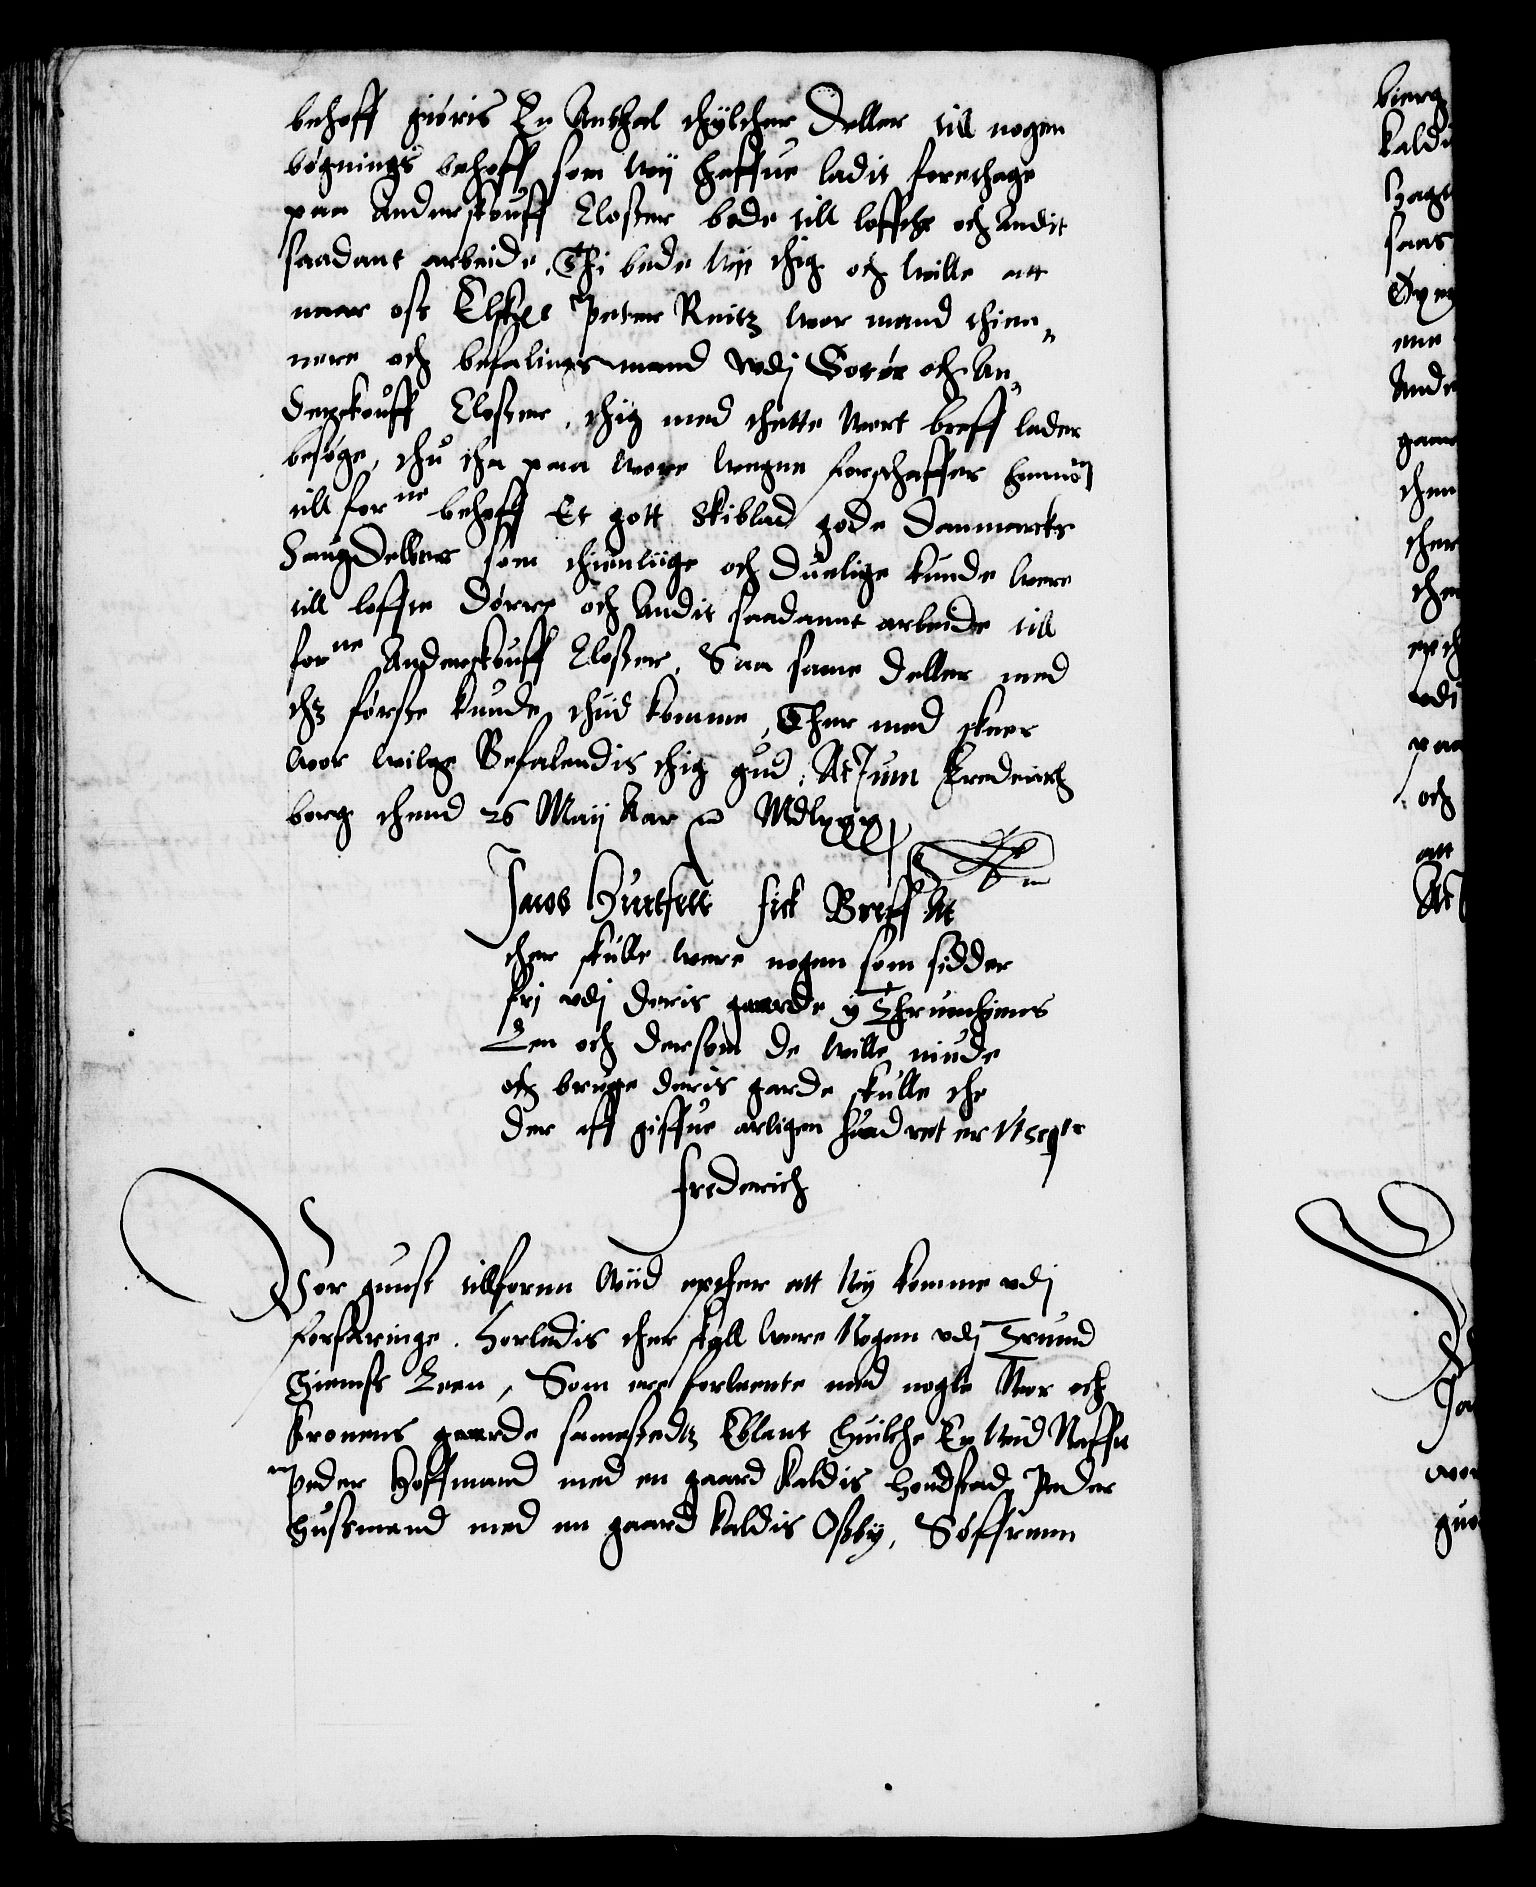 behoff giøris En Anthal thylther Deller till nogen
bøgnings behoff som Wij haffue ladit forethage
paa Anderskouff Closter bode till loffthe och Andit
saadant arbeide, Thi bede Wij thig och Wille att
naar oss Elskel Peter Reitz wor mand thien
nere och befalingsmand vdj Sorøe och An
derskouff Closter, thig med thette Wort breff lader
besøge, thu tha paa Wore Wegne forskaffer hannom
till forne behoff Et gott Skiblad gode Danmarcks
Saugdeller som thienliige och duelige kunde Were
till lofft Dørre och Andit saadannt arbeide till
forne Anderskouff Closter, Saa same Deller med
thz første kunde thid komme, Ther med skeer
wor wilge Befalendis thig gud, Actum Frederich
borg thend 26 Maij Aar &c Mdlxxx
Jacob Huitfelt fick Breff At
ther skulle were nogen som sidder
frj vdj deris gaarde y Thrundhiems
Len och dersom de wille niude
och bruge deris garde skulle the
der aff giffue arligen
Frederich
Vor gunst tillforn Wiid epther att Wij komme vdj
forfaringe, Horledis ther skall were Nogen vdj Trund
hiemss Leen, Som ere forleente med nogle Wor och
Kronens gaarde samestedz Eblant huilche En Wid Naffn
Peder Hoffmand med en gaard kaldis Hondstad, Peder
Hussmand med en gaard kaldis Ossby, Søffrenn
bierg
kaldi
saa
ene
Ande
gaar
then
ther
the
epth
vdi
paa
och
att